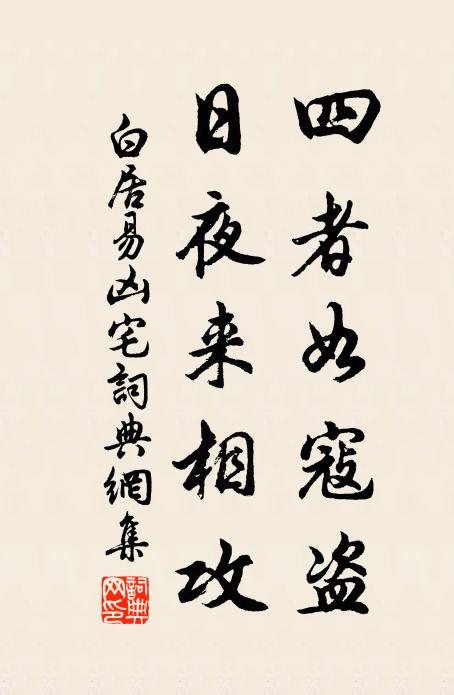 四者如寇盗
日夜来相攻
白居易凶宅詞典網集
詞典网印